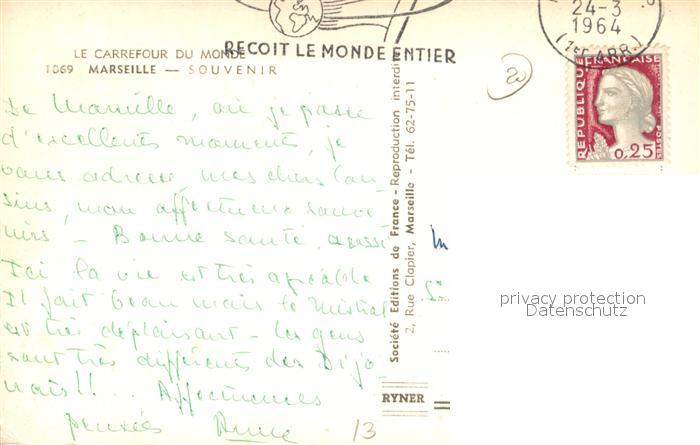 24-3
1964
(1er ARR.)
LE CARREFOUR DU MONDE
REÇOIT LE MONDE ENTIER
1069 MARSEILLE — SOUVENIR
REPUBLIQUE FRANÇAISE
POSTES
0,25
De Marseille, où je passe
d'excellents moments, je
vous adresse mes chers Cou-
sins, mon affectueux souve-
nirs - Bonne santé,
Ici la vie est très agréable
Il fait beau mais le Mistral
est très déplaisant - les gens
sont très différents des Dijo-
nais!! ... Affectueuses
pensées Anne
13
Société Editions de France - Reproduction interdite
2, Rue Clapier, Marseille - Tél. 62-75-11
RYNER
privacy protection
Datenschutz